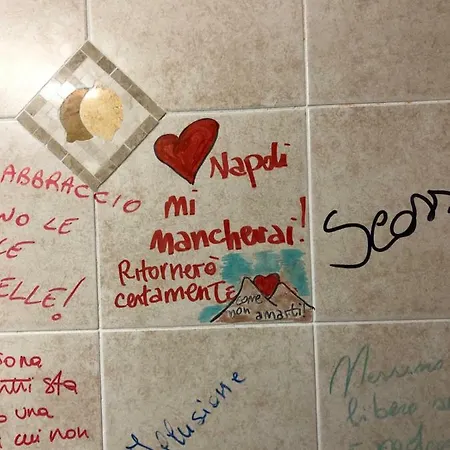 ABBRACCIO
NO LE
LE
ELLE!
Napoli
mi
mancherai!
Ritornerò
certamente
come
non amarti!
sona
sta
una
cui non
Illusione
Nessuno
libero